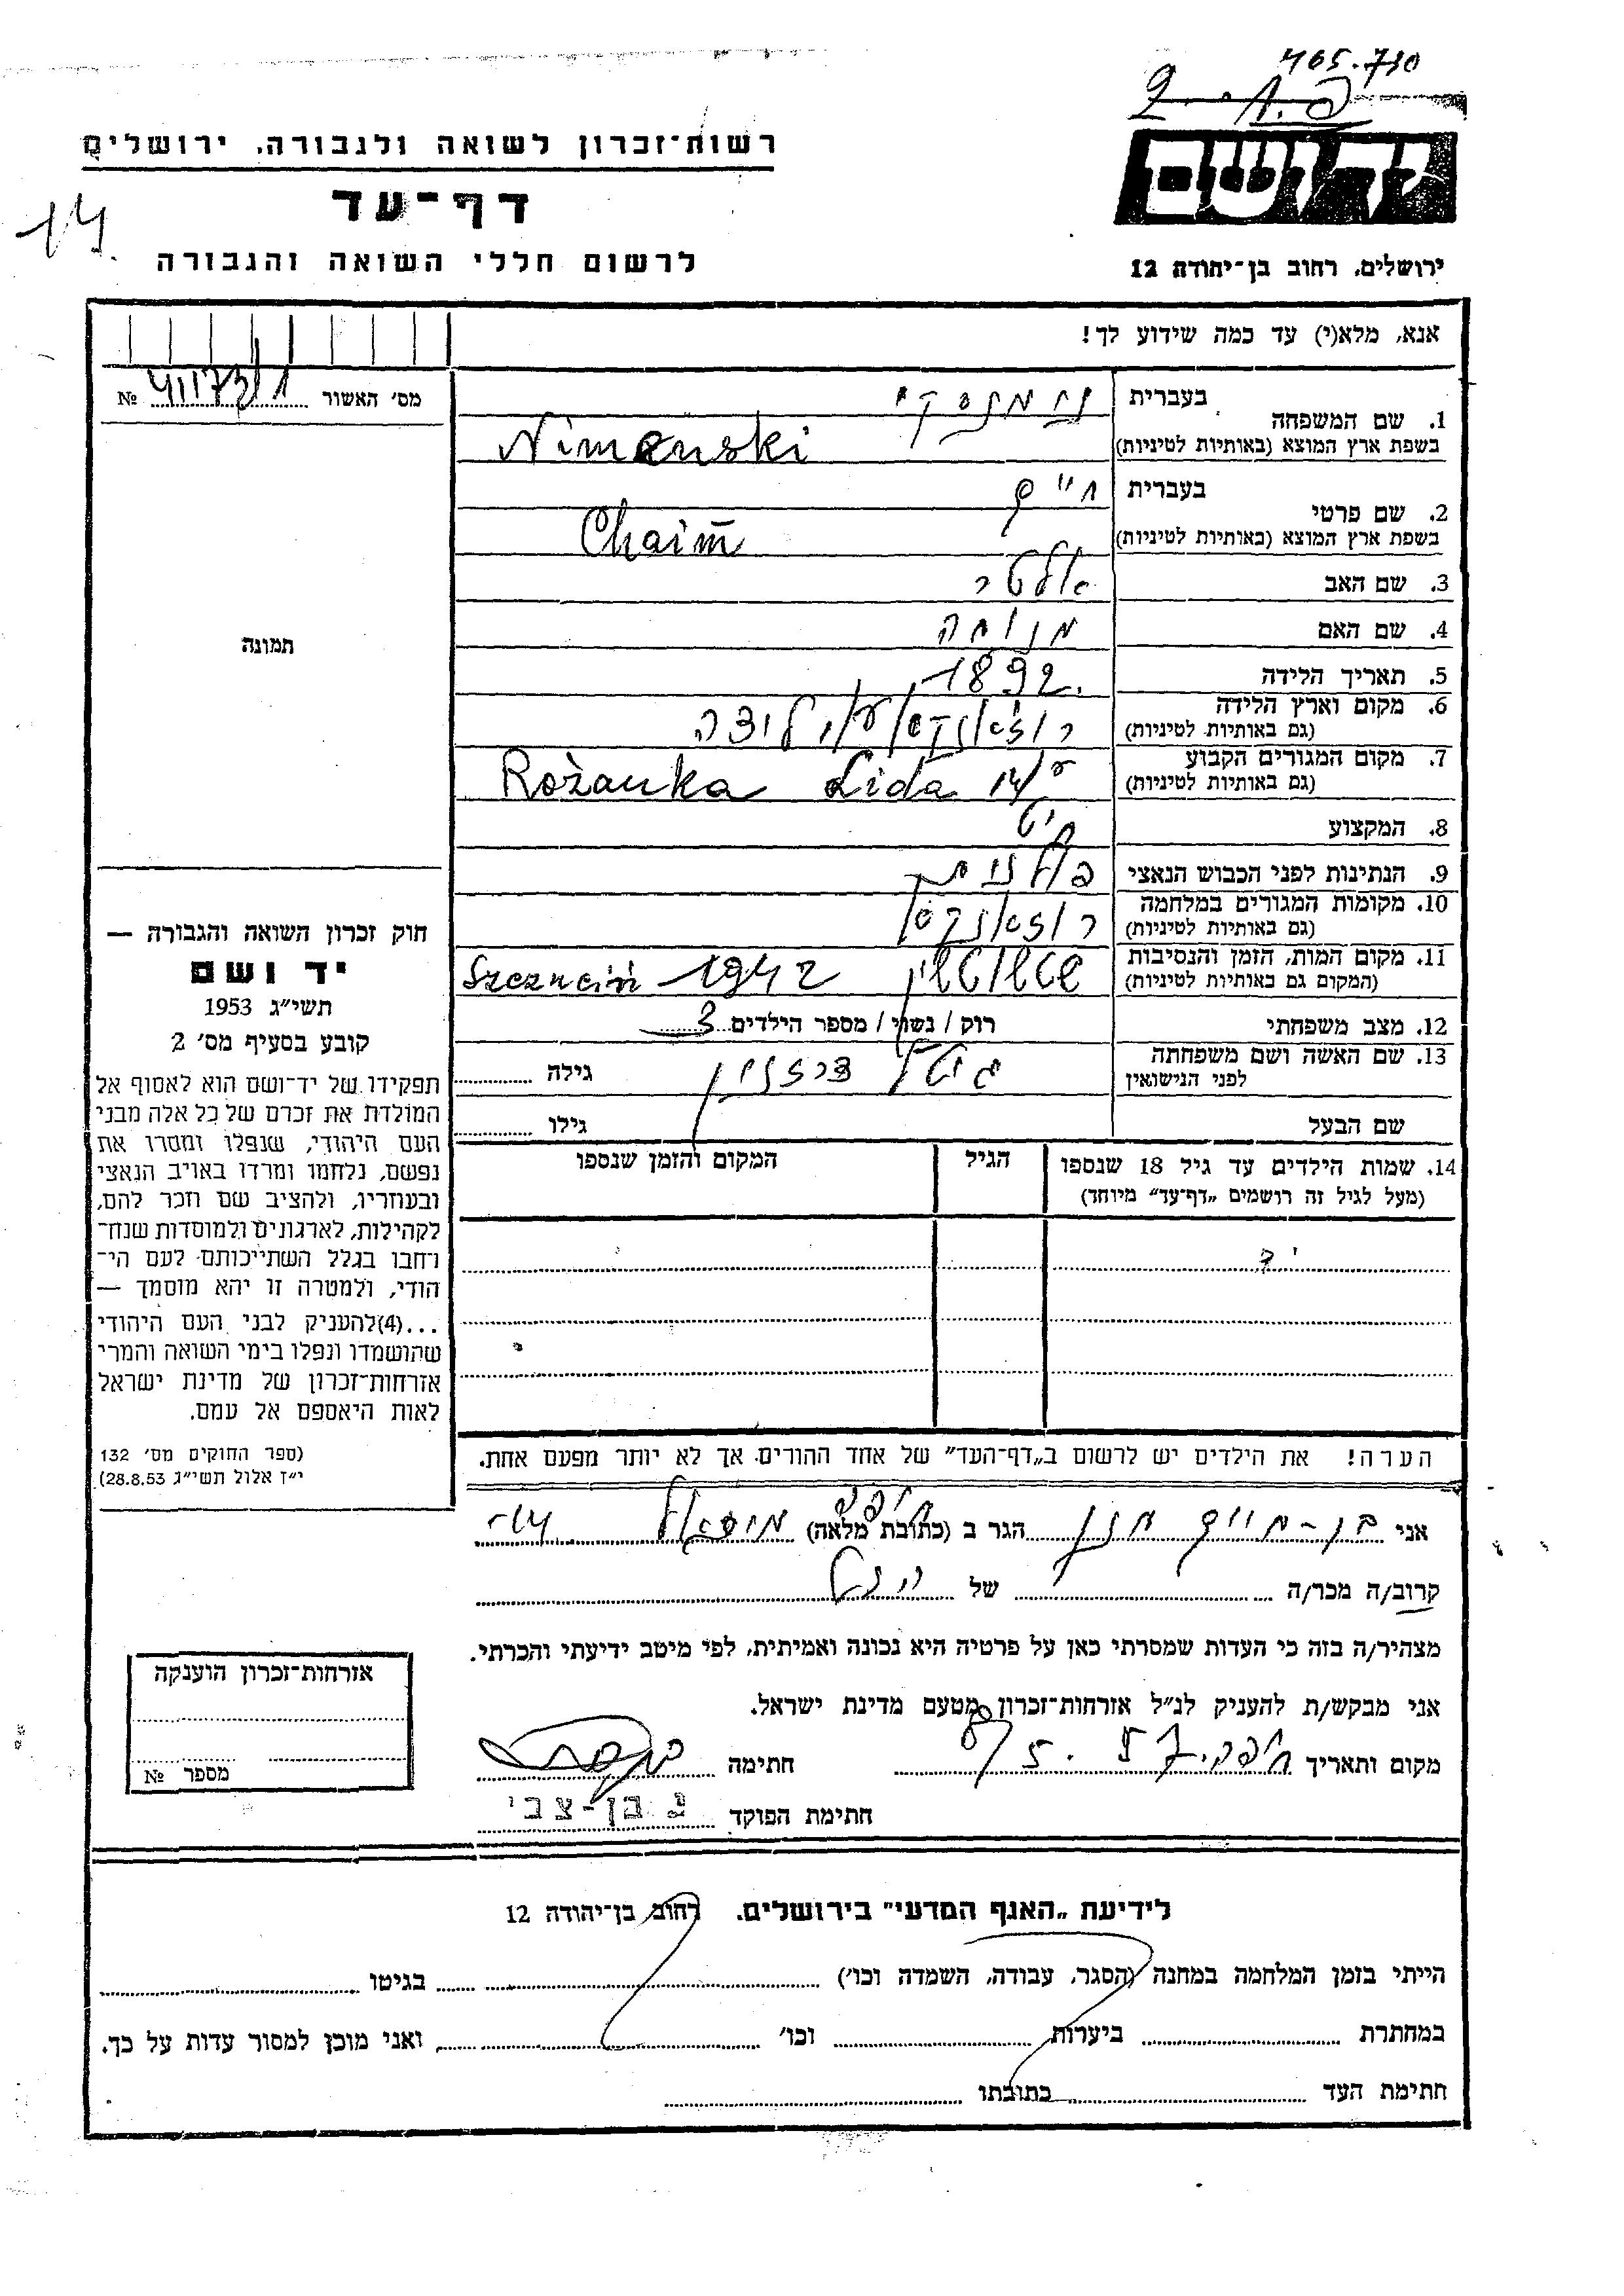 465.710
רשות־זכרון לשואה ולגבורה, ירושלים
יד ושם
דף־עד
14
לרשום חללי השואה והגבורה
ירושלים, רחוב בן־יהודה 12
אנא, מלא(י) עד כמה שידוע לך!
מס׳ האשור № 41173/1
1. שם המשפחה
בעברית נימנסקי
בשפת ארץ המוצא (באותיות לטיניות) Nimenski
2. שם פרטי
בעברית חיים
בשפת ארץ המוצא (באותיות לטיניות) Chaim
3. שם האב אלטר
4. שם האם מנוחה
5. תאריך הלידה 1892
6. מקום וארץ הלידה
(גם באותיות לטיניות)
7. מקום המגורים הקבוע
(גם באותיות לטיניות) Rożanka Lida
8. המקצוע חיט
9. הנתינות לפני הכבוש הנאצי פולנית
10. מקומות המגורים במלחמה
(גם באותיות לטיניות)
11. מקום המות, הזמן והנסיבות
(המקום גם באותיות לטיניות) 1942
12. מצב משפחתי רוק / נשוי / מספר הילדים 3
13. שם האשה ושם משפחתה
לפני הנישואין
גילה
שם הבעל גילו
14. שמות הילדים עד גיל 18 שנספו
(מעל לגיל זה רושמים „דף־עד״ מיוחד)
הגיל
המקום והזמן שנספו
תמונה
חוק זכרון השואה והגבורה —
יד ושם
תשי״ג 1953
קובע בסעיף מס׳ 2
תפקידו של יד־ושם הוא לאסוף אל
המולדת את זכרם של כל אלה מבני
העם היהודי, שנפלו ומסרו את
נפשם, נלחמו ומרדו באויב הנאצי
ובעוזריו, ולהציב שם וזכר להם,
לקהילות, לארגונים ולמוסדות שנח־
רחבו בגלל השתייכותם לעם הי־
הודי, ולמטרה זו יהא מוסמך —
...(4)להעניק לבני העם היהודי
שהושמדו ונפלו בימי השואה והמרי
אזרחות־זכרון של מדינת ישראל
לאות היאספם אל עמם.
(ספר החוקים מס׳ 132
י״ז אלול תשי״ג 28.8.53)
הערה! את הילדים יש לרשום ב„דף־העד״ של אחד ההורים אך לא יותר מפעם אחת.
אני בן-חיים חנן הגר ב (כתובת מלאה) חיפה
קרוב/ה מכר/ה של
מצהיר/ה בזה כי העדות שמסרתי כאן על פרטיה היא נכונה ואמיתית, לפי מיטב ידיעתי והכרתי.
אני מבקש/ת להעניק לנ״ל אזרחות־זכרון מטעם מדינת ישראל.
מקום ותאריך חיפה חתימה
חתימת הפוקד י בן-צבי
אזרחות־זכרון הוענקה
מספר №
לידיעת „האגף המדעי״ בירושלים, רחוב בן־יהודה 12
הייתי בזמן המלחמה במחנה (הסגר, עבודה, השמדה וכו׳) בגיטו
במחתרת ביערות וכו׳ ואני מוכן למסור עדות על כך.
חתימת העד כתובתו